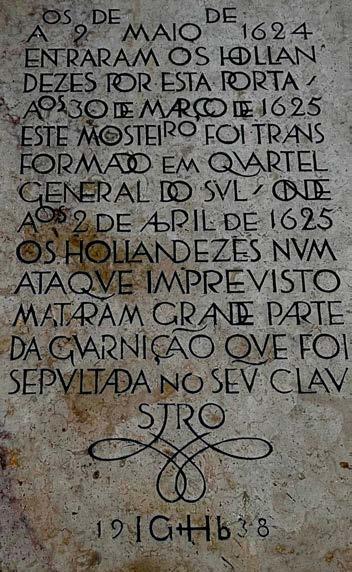 AOS 2 DE MAIO DE 1624
ENTRARAM OS HOLLAN
DEZES POR ESTA PORTA,
AOS 30 DE MARÇO DE 1625
ESTE MOSTEIRO FOI TRANS
FORMADO EM QVARTEL
GENERAL DO SVL, ONDE
AOS 2 DE ABRIL DE 1625
OS HOLLANDEZES NVM
ATAQVE IMPREVISTO
MATARAM GRANDE PARTE
DA GVARNIÇÃO QVE FOI
SEPVLTADA NO SEV CLAV
STRO
19 IGHB 38